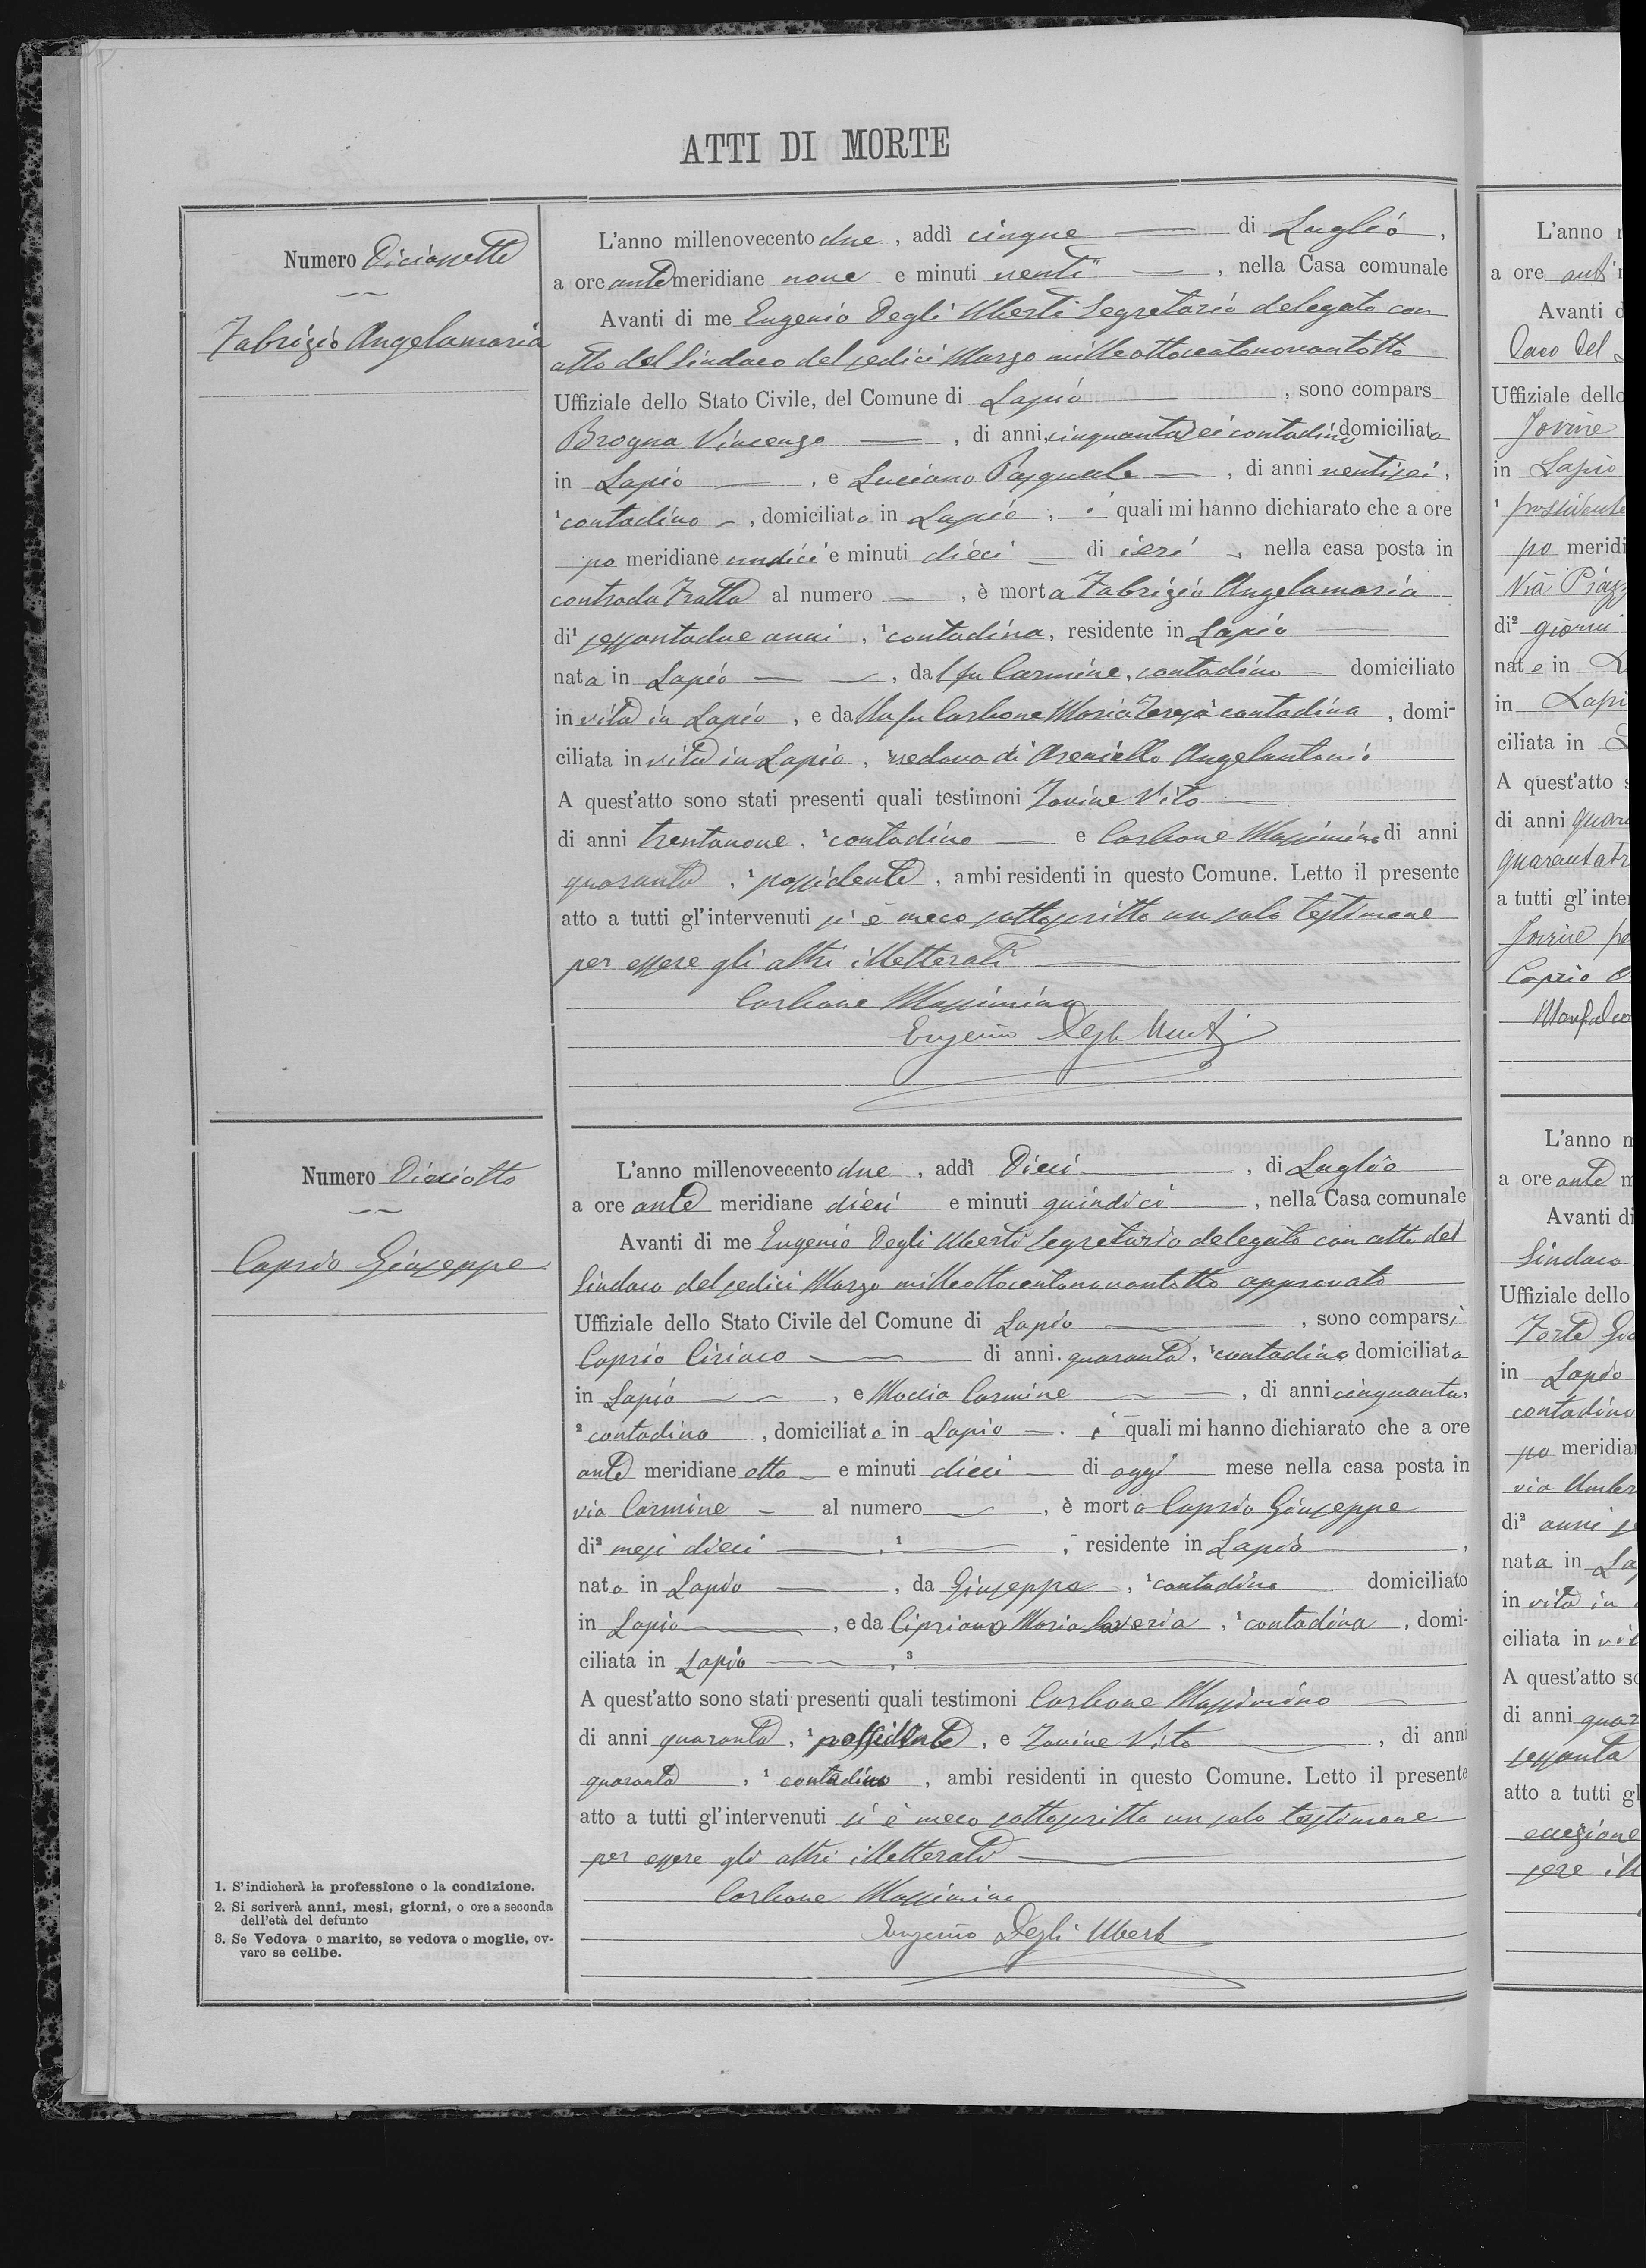 ATTI DI MORTE
Numero Diciassette
Fabrizio Angelamaria
L'anno millenovecento due, addì cinque — di Luglio,
a ore antemeridiane nove e minuti venti —, nella Casa comunale
Avanti di me Eugenio Degli Uberti Segretario delegato con
atto del Sindaco del sedici Marzo milleottocentonovantotto
Uffiziale dello Stato Civile, del Comune di Lapio —, sono compars
Brogna Vincenzo —, di anni cinquantasei contadino domiciliato
in Lapio —, e Luciano Pasquale —, di anni ventisei,
¹ contadino —, domiciliato in Lapio, i quali mi hanno dichiarato che a ore
po meridiane undici e minuti dieci — di ieri —, nella casa posta in
contrada Tratta al numero —, è morta Fabrizio Angelamaria
di¹ sessantadue anni, ¹ contadina, residente in Lapio —
nata in Lapio —, dal fu Carmine, contadino — domiciliato
in vita in Lapio, e dalla fu Carbone Maria Teresa contadina, domi-
ciliata in vita in Lapio, vedova di Areniello Angelantonio
A quest'atto sono stati presenti quali testimoni Iovine Vito —
di anni trentanove, ¹ contadino — e Carbone Massimino di anni
quaranta, ¹ possidente, ambi residenti in questo Comune. Letto il presente
atto a tutti gl'intervenuti si è meco sottoscritto un solo testimone
per essere gli altri illetterati —
Carbone Massimino
Eugenio Degli Uberti
Numero Diciotto
Caprio Giuseppe
L'anno millenovecento due, addì Dieci —, di Luglio
a ore ante meridiane dieci e minuti quindici —, nella Casa comunale
Avanti di me Eugenio Degli Uberti Segretario delegato con atto del
Sindaco del sedici Marzo milleottocentonovantotto approvato
Uffiziale dello Stato Civile del Comune di Lapio —, sono comparsi
Caprio Ciriaco — di anni quaranta, ¹ contadino domiciliato
in Lapio —, e Moccia Carmine —, di anni cinquanta,
² contadino, domiciliato in Lapio —. i quali mi hanno dichiarato che a ore
ante meridiane otto — e minuti dieci — di oggi — mese nella casa posta in
via Carmine — al numero —, è morto Caprio Giuseppe
di² mesi dieci —, ¹ —, residente in Lapio —,
nato in Lapio —, da Giuseppe, ¹ contadino domiciliato
in Lapio —, e da Cipriano Maria Saveria, ¹ contadina, domi-
ciliata in Lapio —, ³ —
A quest'atto sono stati presenti quali testimoni Carbone Massimino —
di anni quaranta, ¹ possidente, e Iovine Vito —, di anni
quaranta, ¹ contadino, ambi residenti in questo Comune. Letto il presente
atto a tutti gl'intervenuti si è meco sottoscritto un solo testimone
per essere gli altri illetterati —
Carbone Massimino
Eugenio Degli Uberti
1. S'indicherà la professione o la condizione.
2. Si scriverà anni, mesi, giorni, o ore a seconda
dell'età del defunto
3. Se Vedova o marito, se vedova o moglie, ov-
vero se celibe.
L'anno
a ore ant
Avanti d
daco del
Uffiziale dello
Iovine
in Lapio
¹ possidente
po meridi
Via Piazz
di² giorni
nate in
in Lapi
ciliata in
A quest'atto s
di anni quar
quarantatr
a tutti gl'inter
Iovine pe
Caprio
L'anno m
a ore ante m
Avanti di
Sindaco
Uffiziale dello
Forte
in Lapio
contadino
po meridia
via Umber
di² anni
nata in La
in vita in
ciliata in vit
A quest'atto so
di anni quar
sessanta
atto a tutti gl
eccezione
sere ill